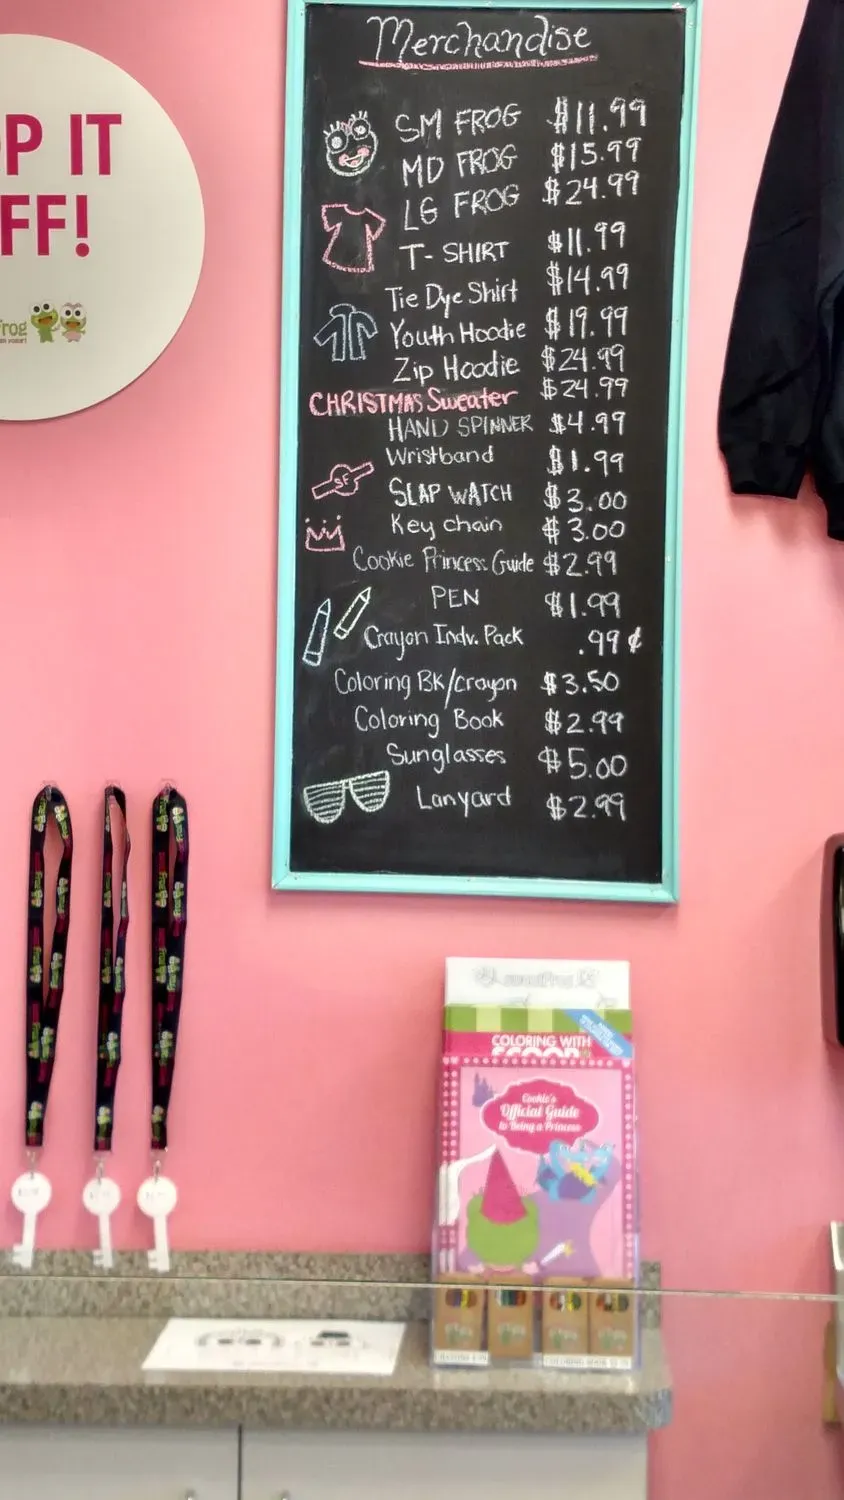 Merchandise
SM FROG $11.99
MD FROG $15.99
LG FROG $24.99
T-SHIRT $11.99
Tie Dye Shirt $14.99
Youth Hoodie $19.99
Zip Hoodie $24.99
CHRISTMAS Sweater $24.99
HAND SPINNER $4.99
Wristband $1.99
SF
SLAP WATCH $3.00
Key chain $3.00
Cookie Princess Guide $2.99
PEN $1.99
Crayon Indv. Pack .99¢
Coloring BK/crayon $3.50
Coloring Book $2.99
Sunglasses $5.00
Lanyard $2.99
P IT
FF!
Frog
COLORING WITH
SCOOP
Cookie's
Official Guide
to Being a Princess